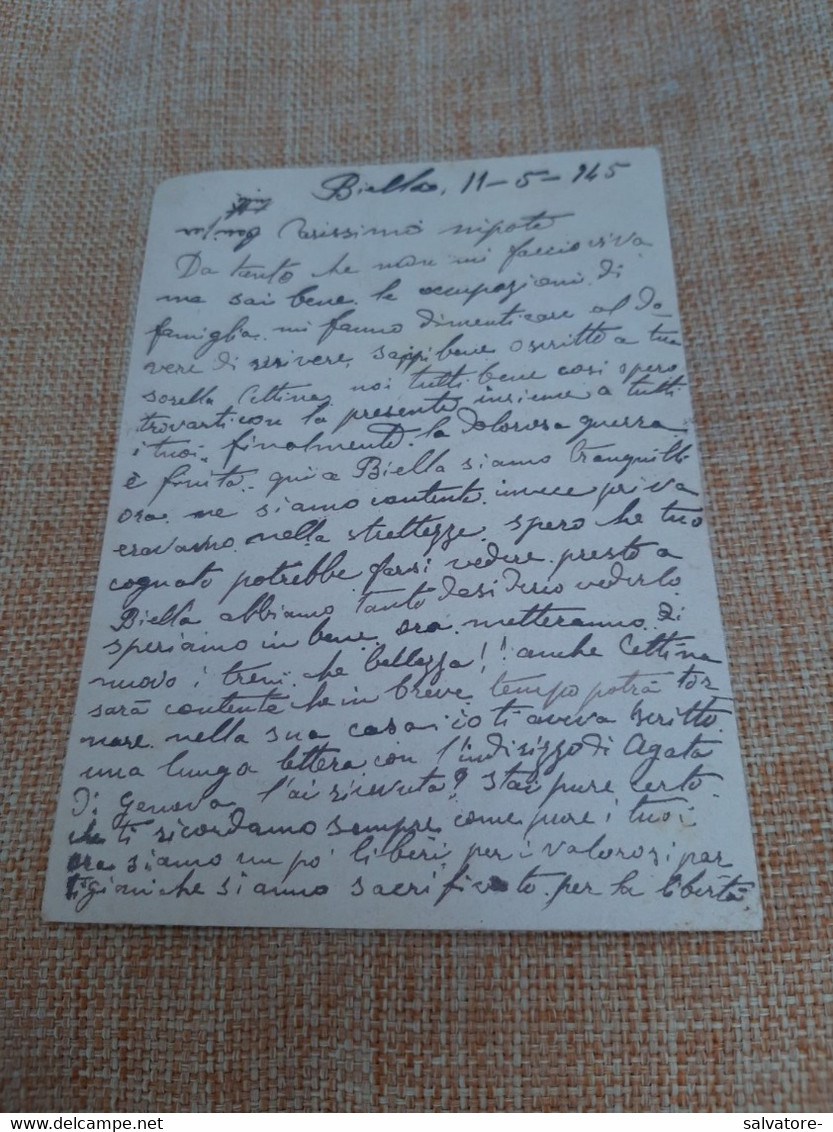 Biella, 11-5-945
Carissimo nipote
Da tanto che non mi faccio viva
ma sai bene le occupazioni di
famiglia mi fanno dimenticare al do
vere di scrivere, sappi bene o scritto a tua
sorella Cettina, noi tutti bene così spero
trovarti con la presente insieme a tutti
i tuoi. finalmente la dolorosa guerra
è finita. qui a Biella siamo tranquilli
ora ne siamo contente invece priva
eravamo nella strettezze. spero che tuo
cognato potrebbe farsi vedere presto a
Biella abbiamo tanto desiderio vederlo
speriamo in bene ora metteranno di
nuovo i treni che bellezza!! anche Cettina
sarà contente che in breve tempo potrà tor
nare nella sua casa io ti aveva scritto
una lunga lettera con l'indirizzo di Agata
di Genova l'ai ricevuta? Stai pure certo
che ti ricordamo sempre come pure i tuoi
ora siamo un po' liberi per i valorosi par
tigiani che si anno sacrificato per la libertà
salvatore-